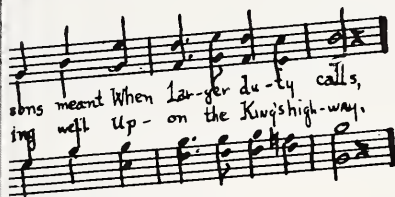 sons meant When Lar-ger du-ty calls,
ing well Up-on the King's high-way.